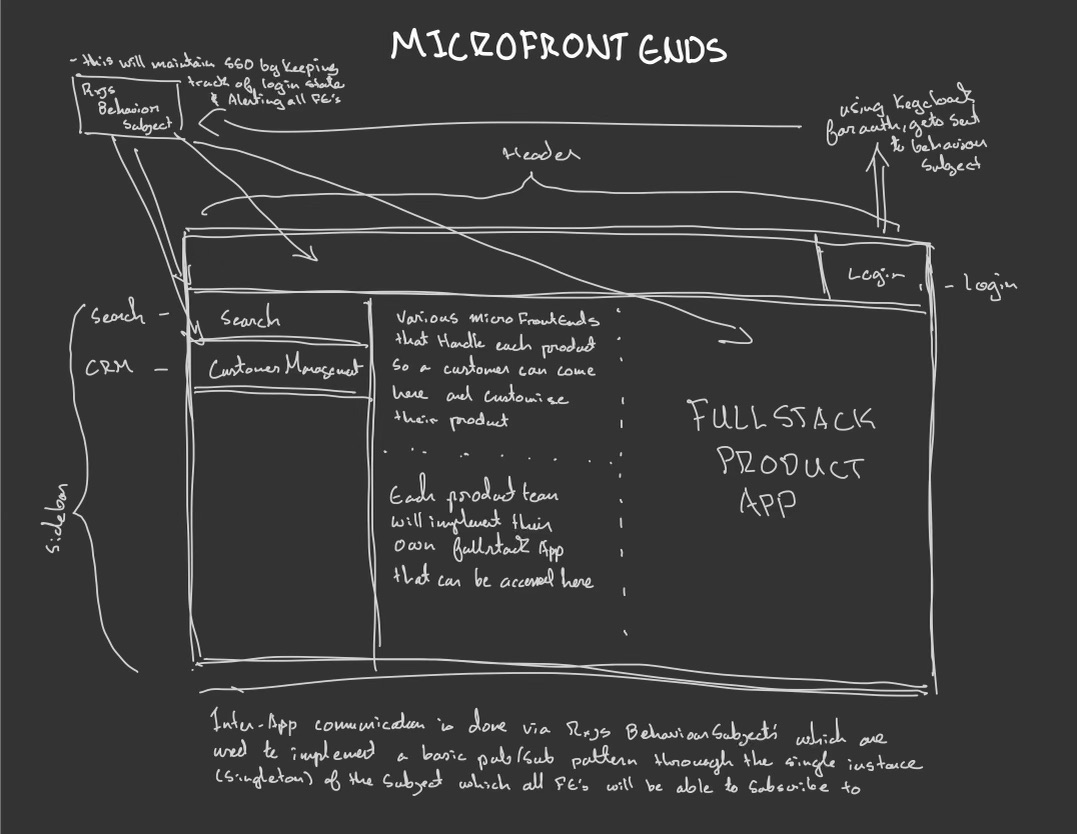 MICROFRONTENDS
- this will maintain SSO by keeping
track of login state
& Alerting all FE's
Rxjs
Behavior
Subject
using Keycloack
for auth, gets sent
to behavior
subject
Header
Login
- Login
Search -
Search
CRM -
Customer Management
Sidebar
Various micro FrontEnds
that Handle each product
so a customer can come
here and customise
their product
Each product team
will implement their
own fullstack App
that can be accessed here
FULLSTACK
PRODUCT
APP
Inter-App communication is done via Rxjs BehaviourSubjects which are
used to implement a basic pub/sub pattern through the single instance
(singleton) of the Subject which all FE's will be able to subscribe to